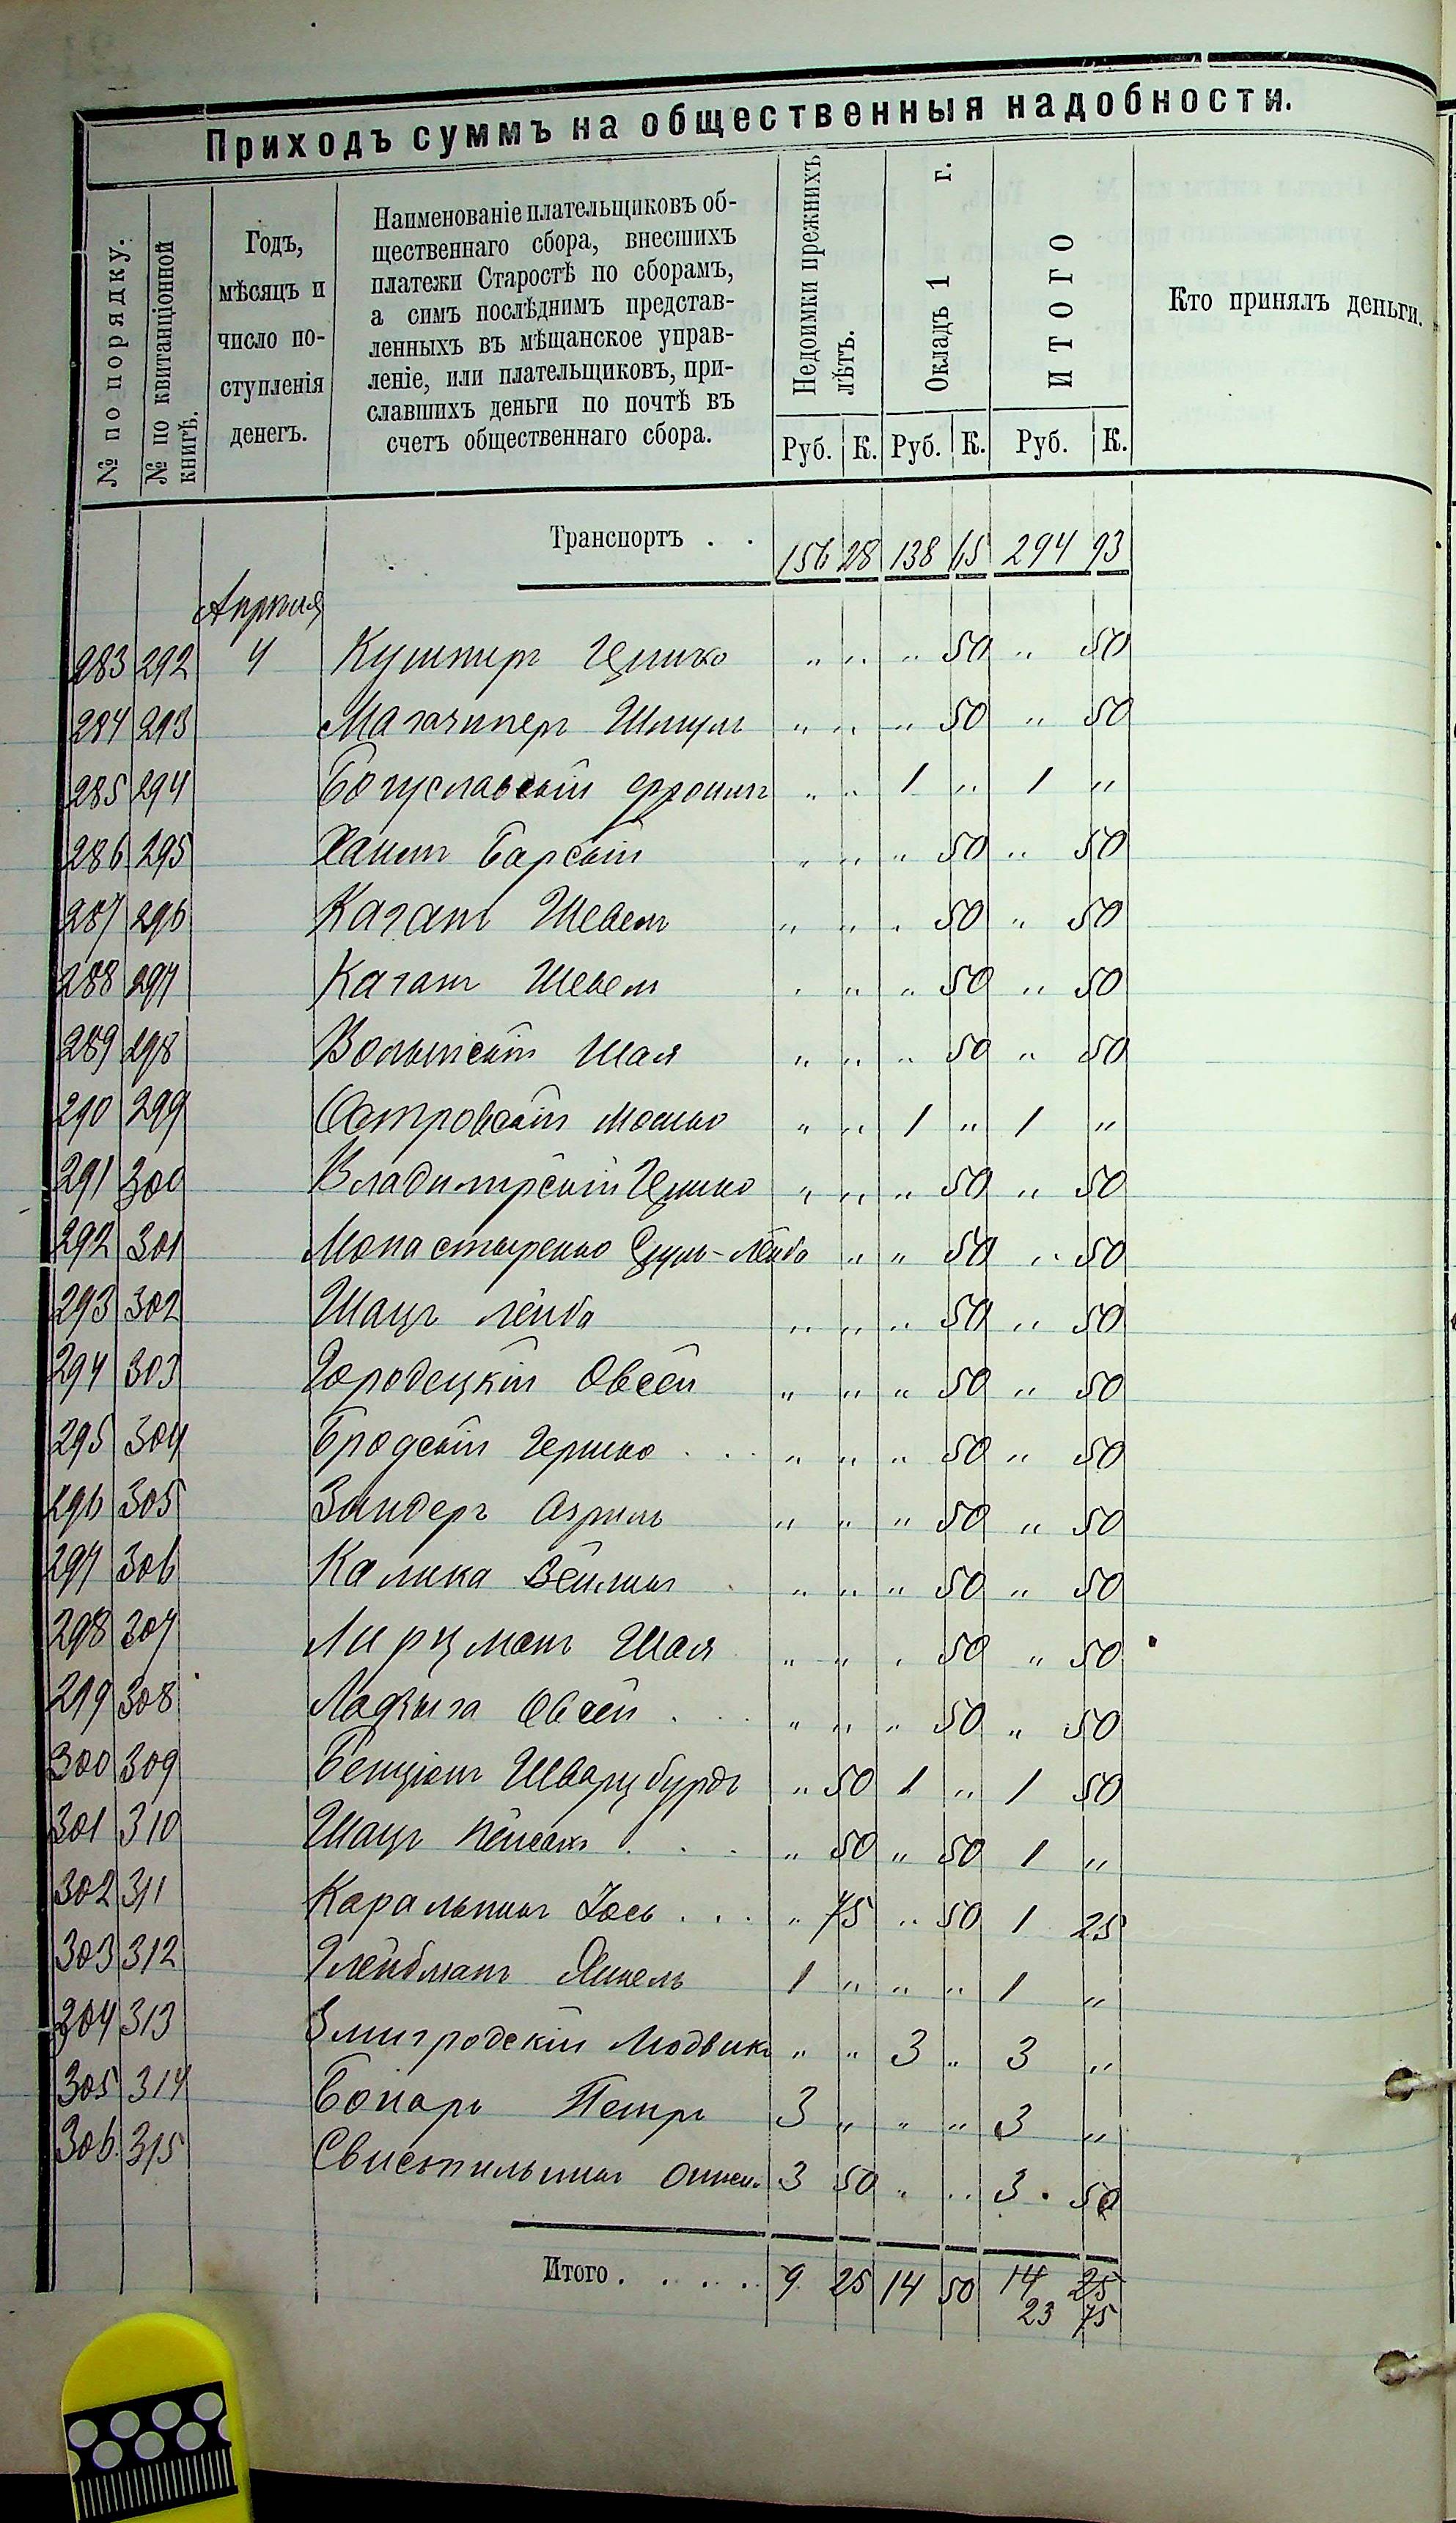 Приходъ суммъ на общественныя надобности.
№ по порядку.
№ по квитанціонной книгѣ.
Годъ,
мѣсяцъ и
число по-
ступленія
денегъ.
Наименованіе плательщиковъ об-
щественнаго сбора, внесшихъ
платежи Старостѣ по сборамъ,
а симъ послѣднимъ представ-
ленныхъ въ мѣщанское управ-
леніе, или плательщиковъ, при-
славшихъ деньги по почтѣ въ
счетъ общественнаго сбора.
Недоимки прежнихъ
лѣтъ.
Окладъ 1 г.
ИТОГО
Кто принялъ деньги.
Руб. К. Руб. К. Руб. К.
Транспортъ . . 156 28 138 65 294 93
Апрѣля
283 292 4 Кушниръ Ицько " " " 50 " 50
284 293 Шмуль " " " 50 " 50
285 294 Богуславскій Фроимъ " " 1 " 1 "
286 295 Хаимъ Барскій " " " 50 " 50
287 296 Каганъ Шевель " " " 50 " 50
288 297 Каганъ Шевель " " " 50 " 50
289 298 Волынскій Шая " " " 50 " 50
290 299 Островскій Мошко " " 1 " 1 "
291 300 Владимірскій Ицько " " " 50 " 50
292 301 Монастыренко Сруль-Лейба " " 50 " 50
293 302 Шацъ Лейба " " " 50 " 50
294 303 Городецкій Овсей " " " 50 " 50
295 304 Бродскій Гершко . . . " " " 50 " 50
296 305 Зиндеръ Азриль " " " 50 " 50
297 306 Калика " " " 50 " 50
298 307 Лирцманъ Шая " " " 50 " 50
299 308 Ладыга Овсей . . . " " " 50 " 50
300 309 Бенціонъ Шварцбурдъ " 50 1 " 1 50
301 310 Шацъ Пейсахъ . . . " 50 " 50 1 "
302 311 Каральникъ Іось . . . " 75 " 50 1 25
303 312 Глейбманъ Янкель 1 " " " 1 "
304 313 Змигродскій Людвикъ " " 3 " 3 "
305 314 Бонарь Петръ 3 " " " 3 "
306 315 3 50 " " 3 . 50
Итого . . . . . 9 25 14 50 14 25
23 75